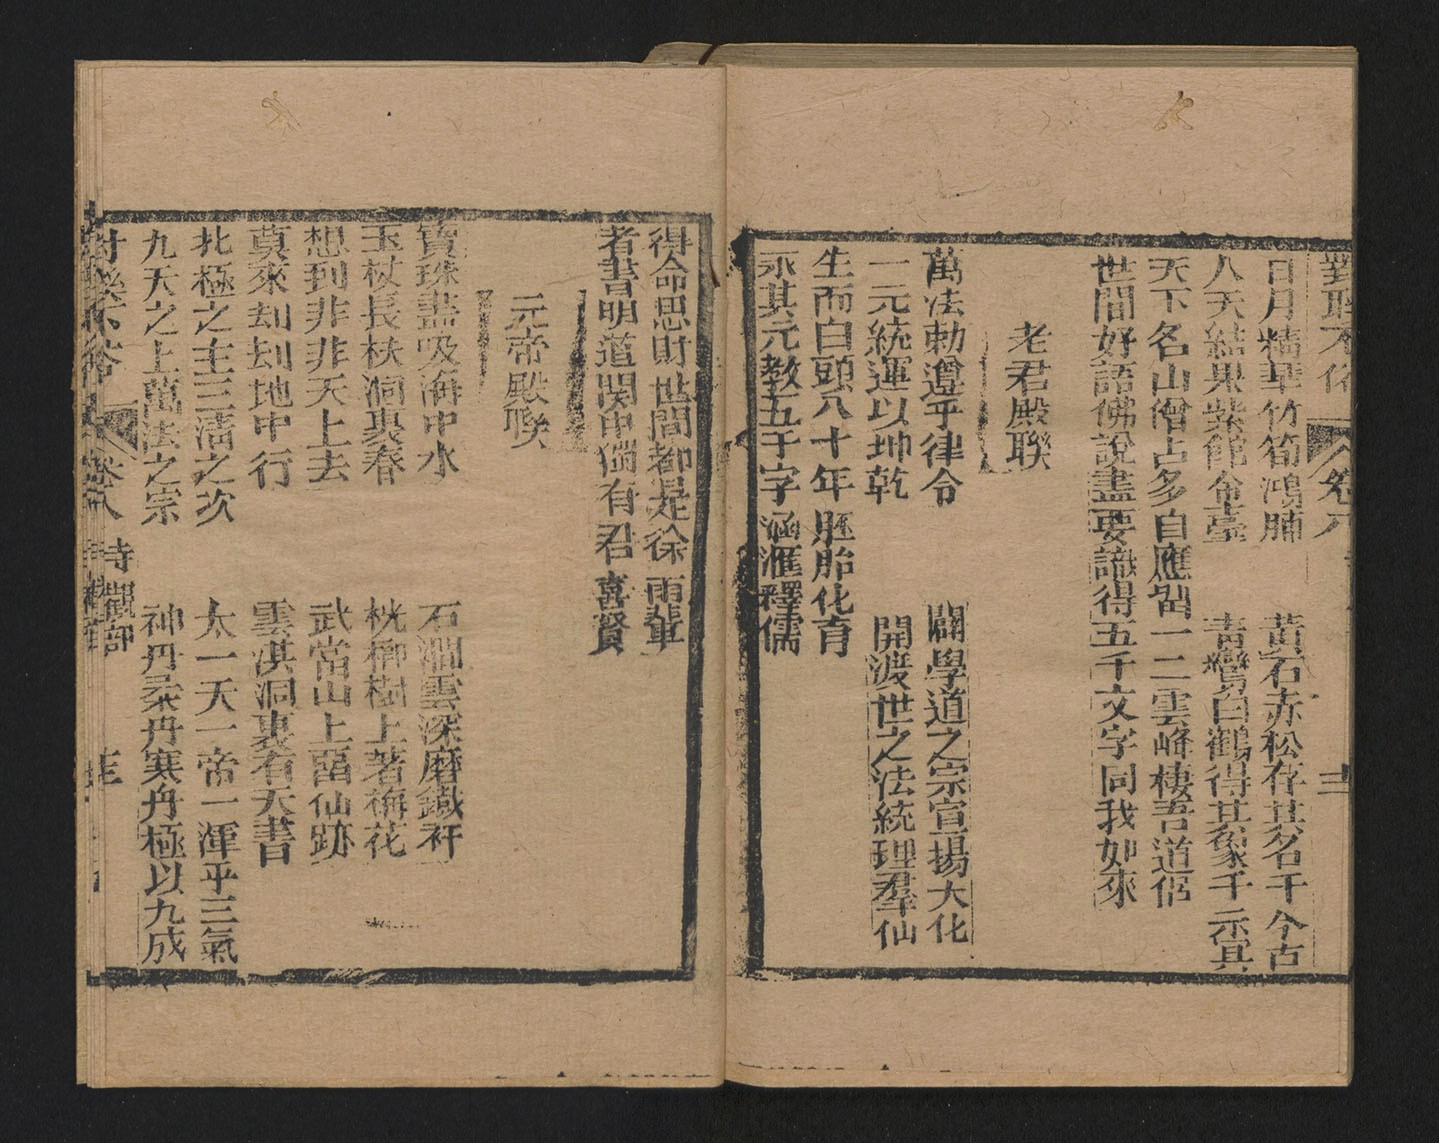 對聯不俗 卷八
日月精華竹筍鴻脯 黃石赤松存其名千今古
人天結果紫館金臺 青鸞白鶴得其象千示具
天下名山僧占多自應留一二雲峰棲吾道侶
世間好語佛說盡要識得五千文字同我如來
老君殿聯
萬法勅遵乎律令 闢學道之宗宣揚大化
一元統運以坤乾 開渡世之法統理羣仙
生而白頭八十年胚胎化育
永其元教五千字涵滙釋儒
得命思財世間都是徐雨輩
者書明道関中獨有君喜賢
元帝殿聯
寶珠盡吸海中水 石澗雲深磨鐵杵
玉杖長扶洞裏春 桄榔樹上著梅花
想到非非天上去 武當山上留仙跡
莫來刦刦地中行 雲淇洞裏有天書
北極之主三清之次 太一天一帝一渾乎三氣
九天之上萬法之宗 神丹柔丹寒丹極以九成
卷八 寺觀部